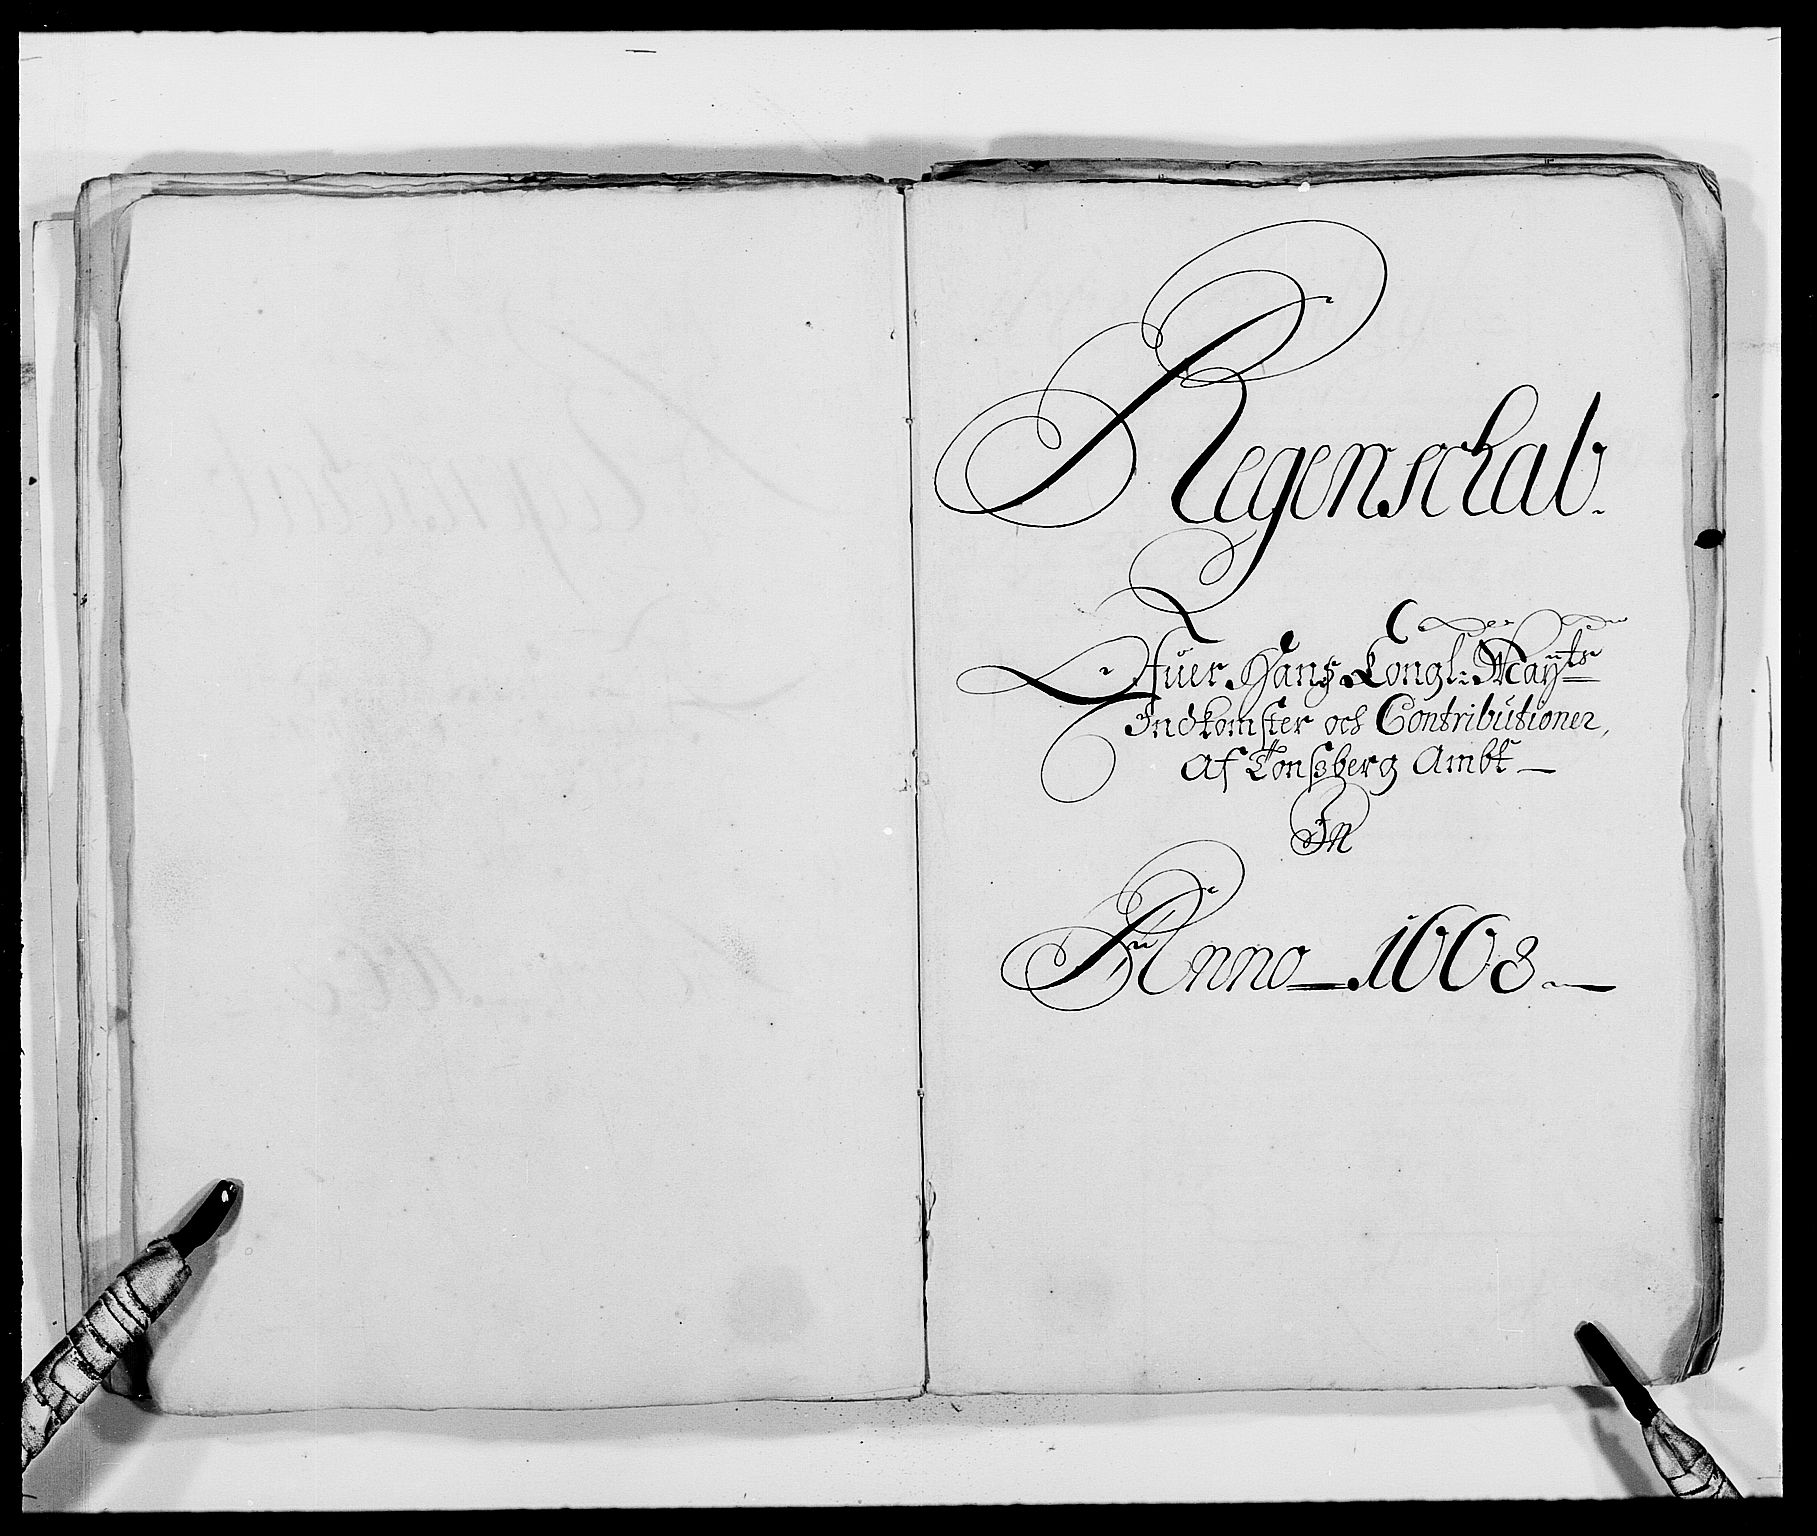 Regenschab.
Ofuer Hans Kongl: Mayts
Indkomster och Contributioner,
Af Tonsberg Ambt
In
Anno 1668